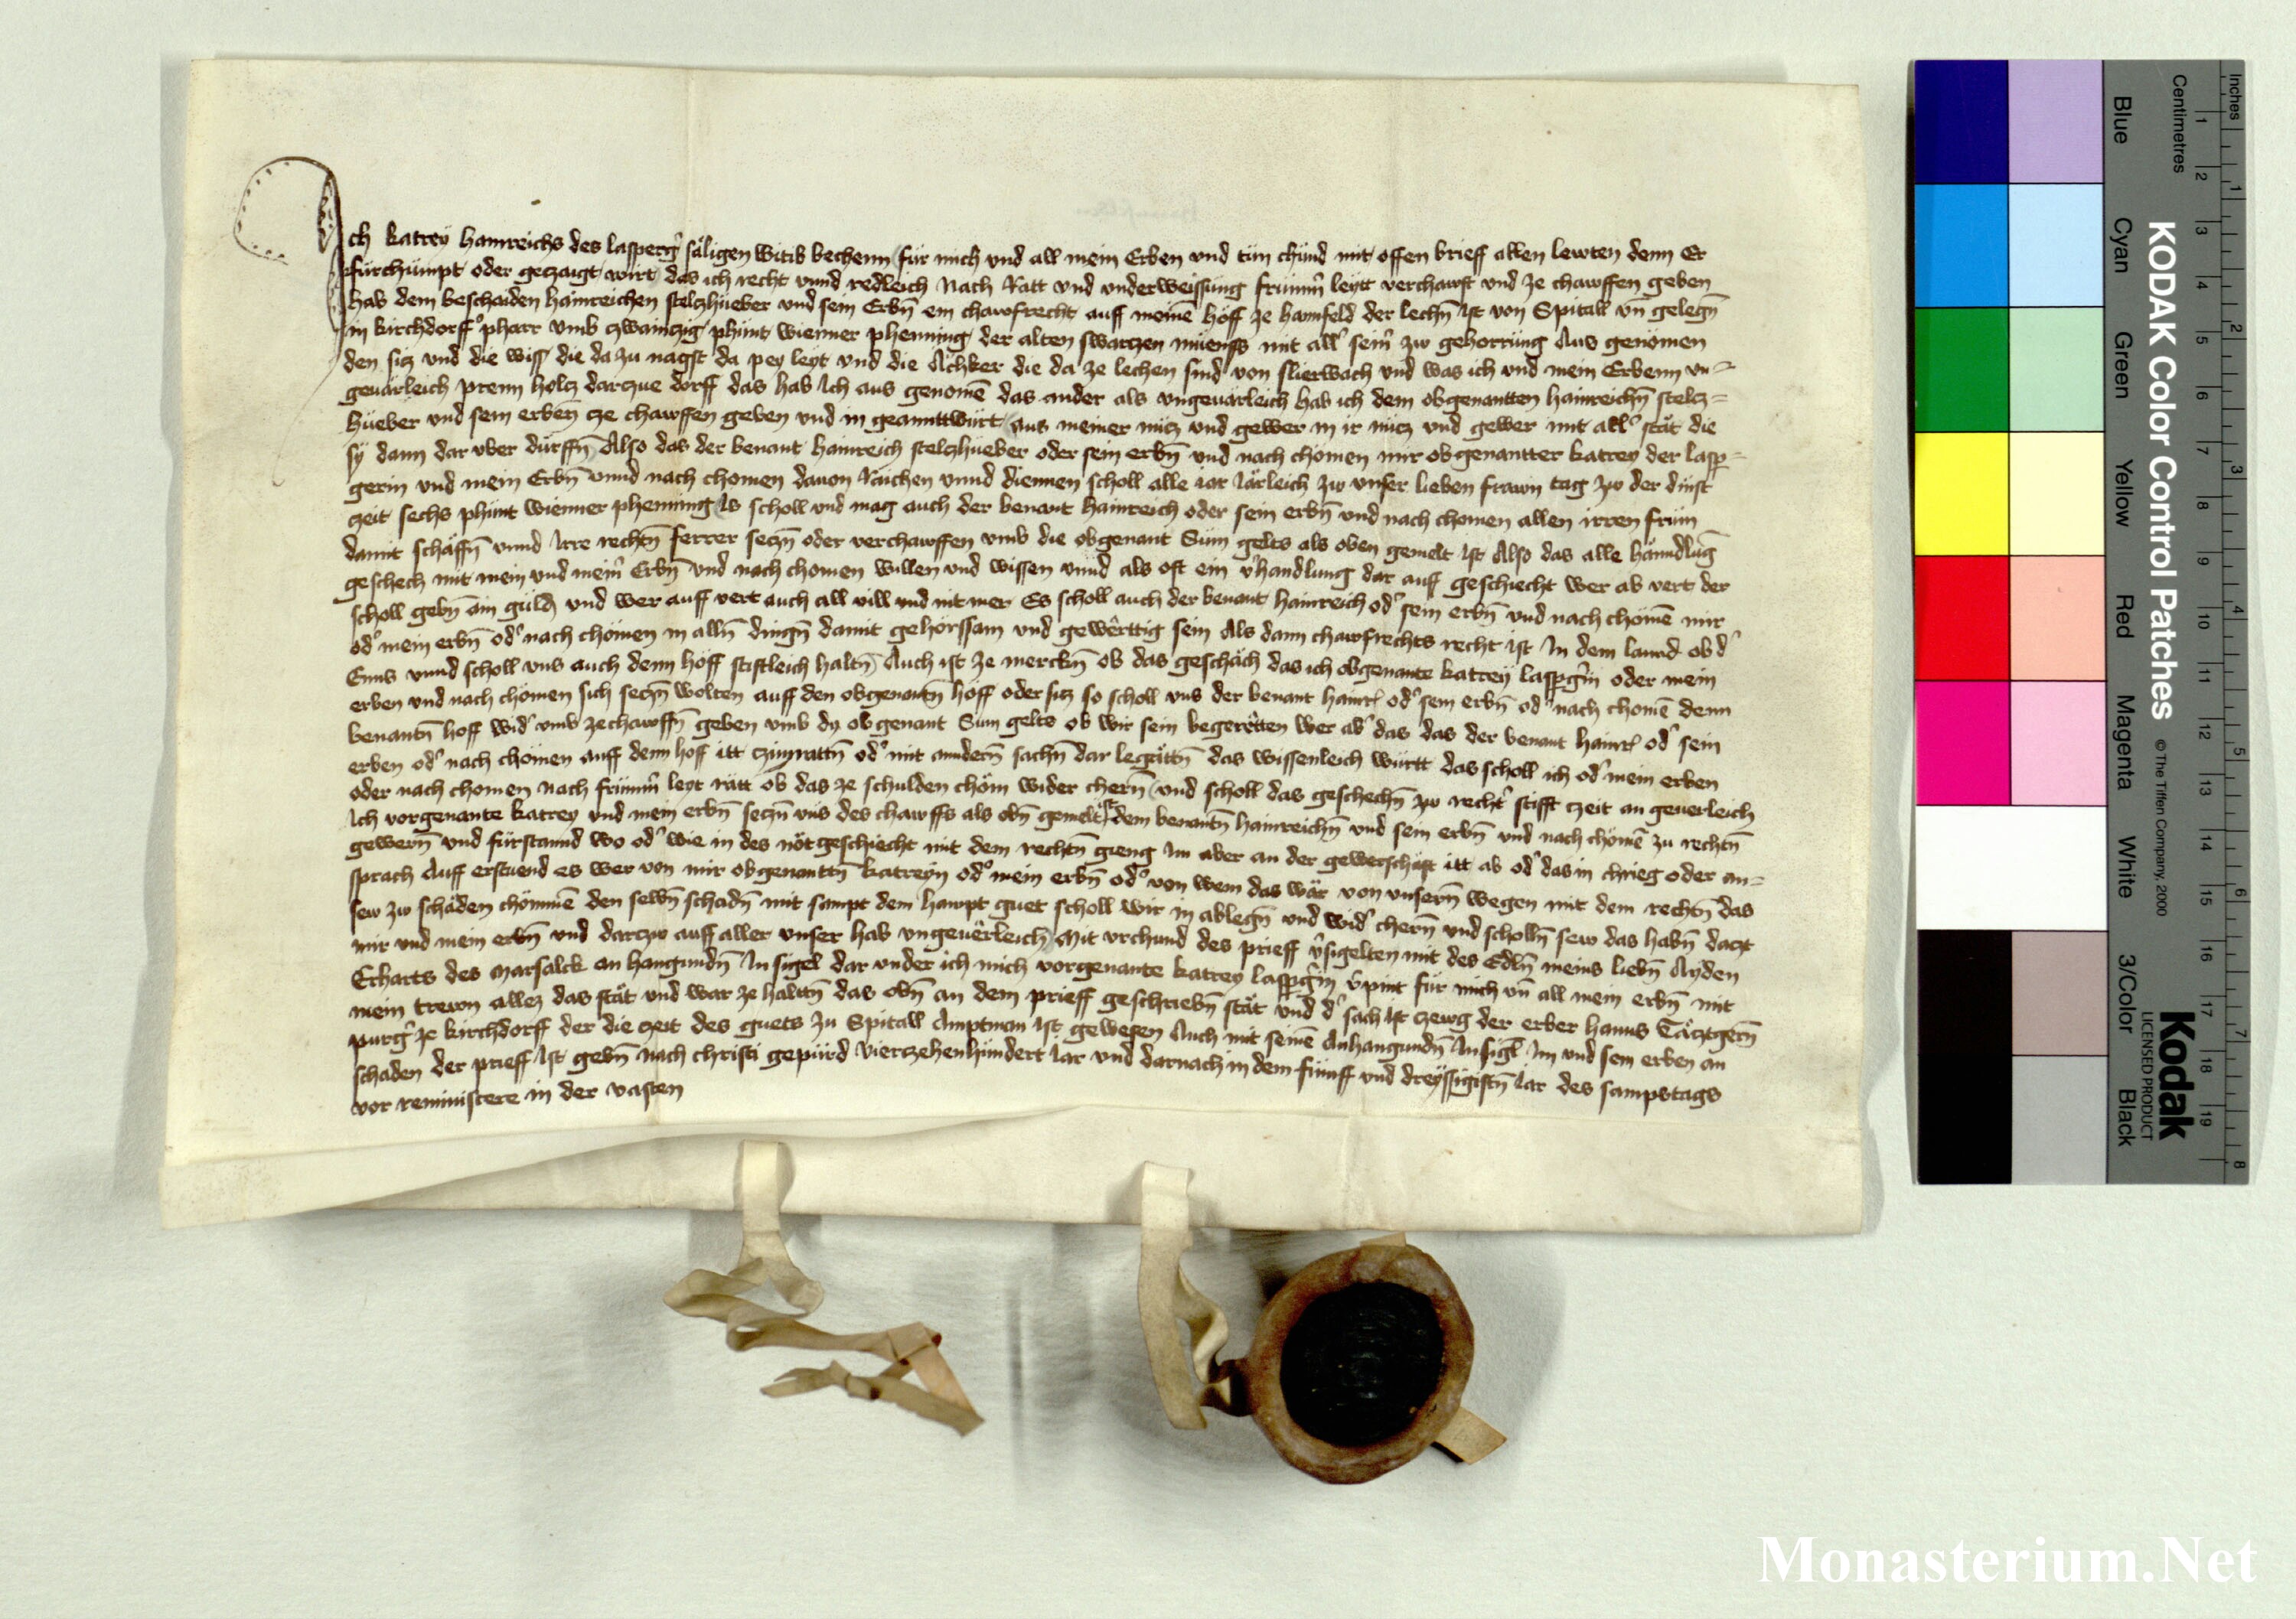 Ich katrey hainreichs des lasperg̉ säligen witib bechenn für mich und all mein Erben und tün chünd mit offen brieff allen lewten denn Er
fürchümpt oder geczaigt wirt das ich recht vnnd redleich Nach Ratt vnd vnderweissüng frümm̉ leytt verchawfft vnd ze chawffen geben
hab dem beschaiden hainreichen stelczhueber vnd sein Erbn̄ ein chawfrecht auff meinē höff ze hannfeld der lechn̄ ist von Spitall vn̄ gelegn̄
in kirchdorff̉ pharr vmb czwainczig phünt wienner phenning der alten swarczen müenss mit all̉ sein̉ zw gehorrüng Aus genömen
den sicz vnd die wiss die da zu nagst da pey leyt vnd die Ächker die da ze lechen sind von slierwach vnd was ich vnd mein Erbenn vn=
geuärleich prenn holcz darczue dorff das hab Ich aus genomē das ander als vngeuärleich hab ich dem obgenantten hainreichn̄ stelcz=
hueber vnd sein erben cze chawffen geben vnd in geanttwürt Aus meiner nücz vnd gewer in ir nücz vnd gewer mit all̉ stät die
sy dann dar vber dürffn̄ Also das der benant hainreich stelczhueber oder sein erbn̄ vnd nach chömen mir obgenantter katrey der lasp=
gerin vnd mein Erbn̄ vnnd nach chomen dauon Raichen vnnd diennen scholl alle iar Järleich zw vnser lieben frawn tag zw der dinst
czeit sechs phünt wienner phenning Es scholl vnd mag auch der benant hainreich oder sein erbn̄ vnd nach chomen allen irren früm
damit schäffn̄ vnnd Irre rechtn̄ ferrer seczn̄ oder verchawffen vmb die obgenant Süm gelts als oben gemelt ist Also das alle hänndluḡ
geschech mit mein vnd mein̉ Erbn̄ vnd nach chomen willen vnd wissen vnnd als oft ein v̉handlung dar auff geschiecht wer ab vert der
scholl gebn̄ ain güldn̄ vnd wer auff vert auch all vill vnd nit mer Es scholl auch der benant hainreich od̉ sein erbn̄ vnd nach chömē mir
od̉ mein erbn̄ od̉ nach chömen in alln̄ dingn̄ damit gehorssam vnd gewerttig sein Als dann chawfrechts recht ist In dem lannd ob d̉
Enns vnnd scholl vns auch denn höff stiftleich haltn̄ Auch ist ze merckn̄ ob das geschäch das ich obgenante katrey laspg̉in oder mein
erben vnd nach chömen sich seczn̄ wolten auff den obgenantn̄ höff oder sicz so scholl vns der benant hainr̉ od̉ sein erbn̄ od̉ nach chomē denn
benantn̄ hoff wid̉ vmb ze chawffn̄ geben vmb dy obgenant Sum gelts ob wir sein begerëtten wer ab̉ das das der benant hainr̉ od̉ sein
erben od̉ nach chömen auff denn hoff itt czimrattn̄ od̉ mit anndern̄ sachn̄ dar legättn̄ das wissenleich württ das scholl ich od̉ mein erben
oder nach chomen Nach frümm̉ leyt rätt ob das ze schulden chöm wider chern̄ vnd scholl das geschechn̄ zw recht̉ stifft czeit an geuerleich
Ich vorgenante katrey vnd mein erbn̄ seczn̄ vns des chawffs als obn̄ gemelt ist dem benantn̄ hainreichn̄ vnd sein erbn̄ vnd nach chömē zu rechtn̄
gewern̄ vnd fürstannd wo od̉ wie in des nöt geschiecht mit dem rechtn̄ gieng Im aber an der gewerschäft itt ab od̉ das in chrieg oder an=
sprach Auff erstuend es wer von mir obgenanttn̄ katreyn od̉ mein erbn̄ od̉ von wem das wär von vnsern̄ wegen mit dem rechtn̄ das
sew zw schäden chömmē den selbn̄ schadn̄ mit sampt dem hawpt guet scholl wir in ablegn̄ vnd wid̉ chern̄ vnd scholln̄ sew das habn̄ dacz
mir vnd mein erbn̄ vnd darczw auff aller vnser hab vngeuërleich Mit vrchund des prieff v̉sigelten mit des Edln̄ meins liebn̄ Ayden
Erharts des Marsalck an hangundn̄ Insigel dar vnder ich mich vorgenante katrey laspg̉in v̉pint für mich vn̄ all mein erbn̄ mit
mein trewn allez das stät vnd war ze halttn̄ das obn̄ an dem prieff geschriebn̄ stät vnd d̉ sach ist czewg der erber hanns Täcztgern̄
purg̉ ze kirchdorff der die czeit des guets zu Spitall Amptman ist gewesen Auch mit seinē Anhangundn̄ Insigl̄ Im vnd sein erben an
schaden der prieff Ist gebn̄ Nach christi gepürd vierczehenhündert Jar vnd darnach in dem fünff vnd dreyssigistn̄ Jar des sampstags
vor reministere in der vasten
Inches
Centimetres
KODAK Color Control Patches
© The Tiffen Company, 2000
Blue
Cyan
Green
Yellow
Red
Magenta
White
3/Color
Black
Kodak
LICENSED PRODUCT
1 2 3 4 5 6 7 8 9 10 11 12 13 14 15 16 17 18 19
1 2 3 4 5 6 7 8
Monasterium.Net